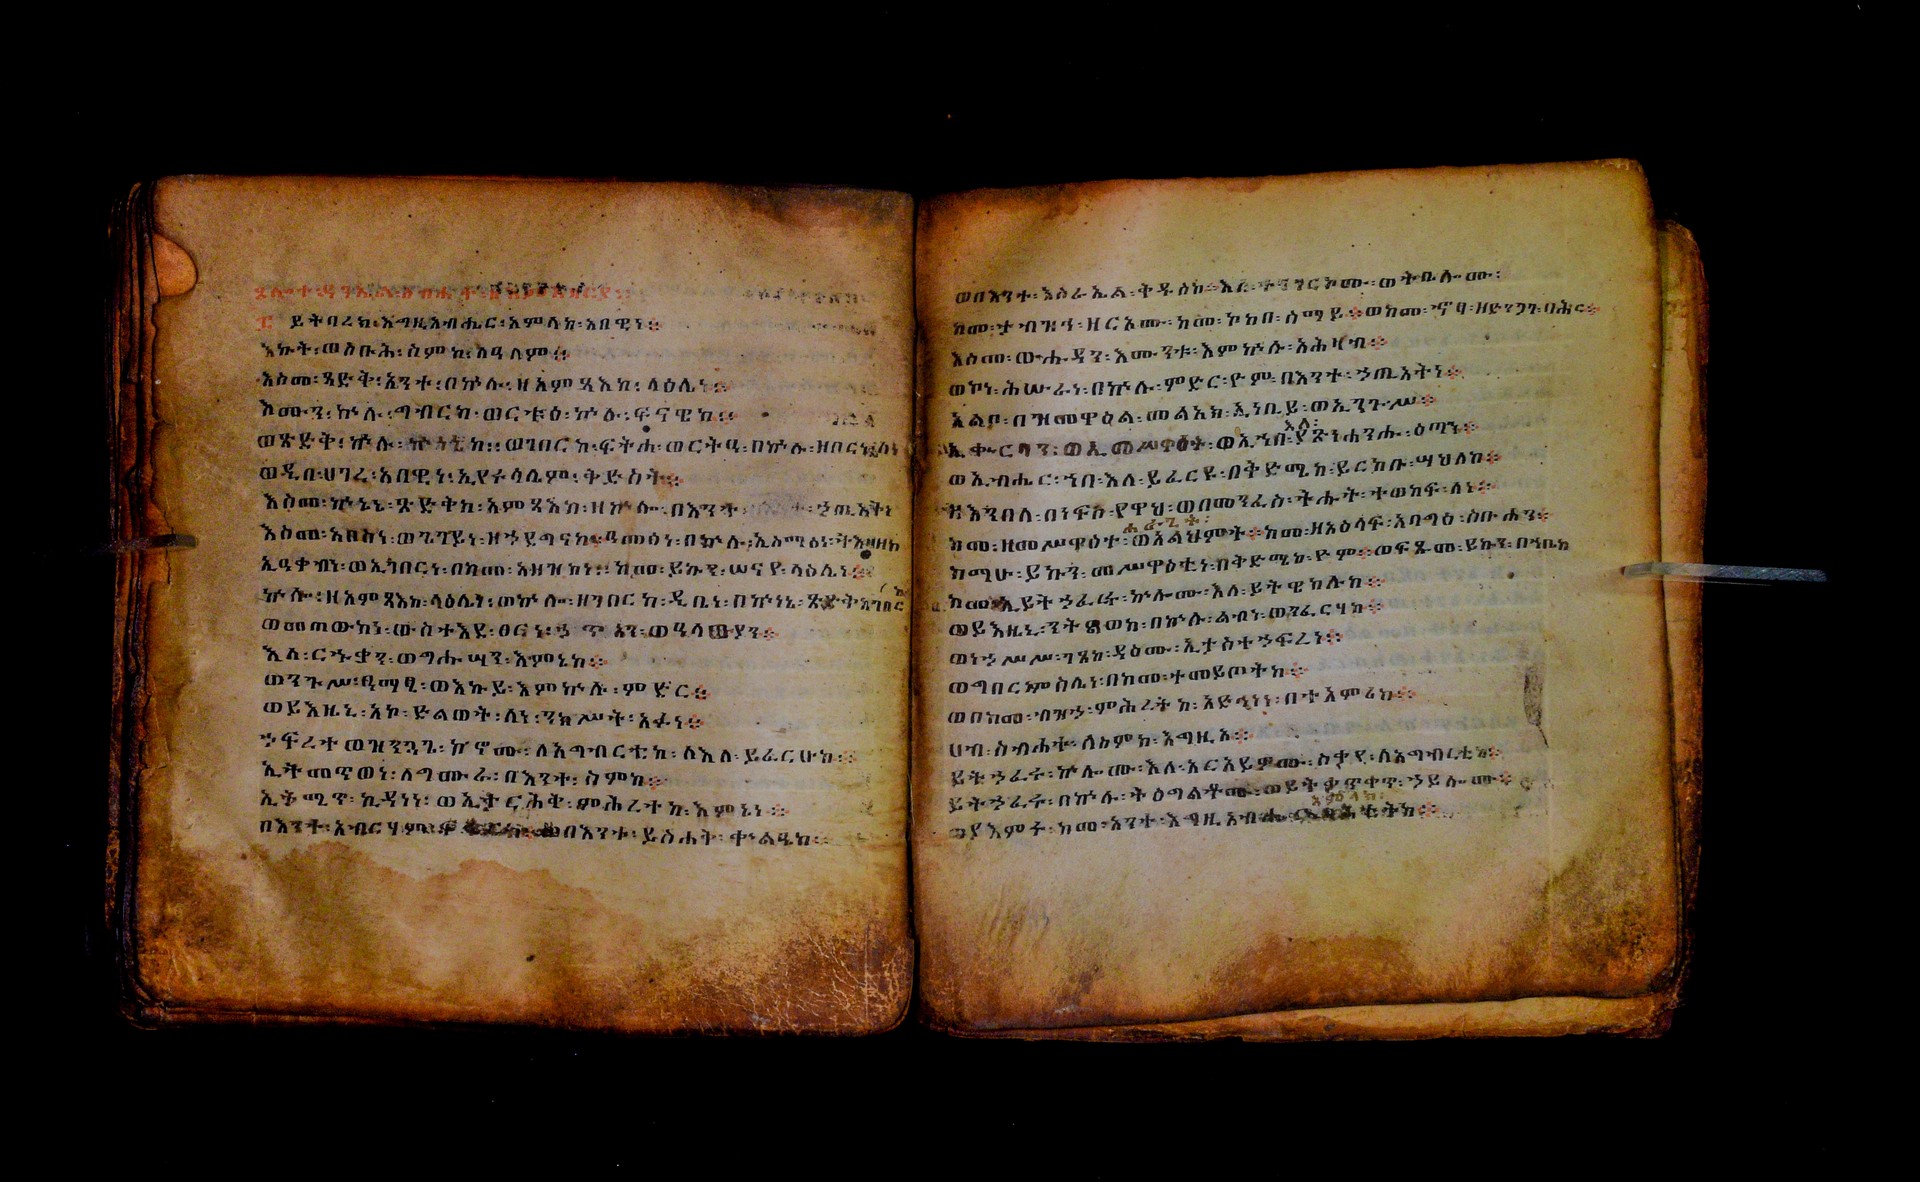 ይትባረክ፡እግዚአብሔር፡አምላከ፡አበዊነ፨
እኩት፡ወስቡሕ፡ስምከ፡ለዓለም፨
እስመ፡ጻድቅ፡አንተ፡በኵሉ፡ዘአምጻእከ፡ላዕሌነ፨
እሙን፡ኵሉ፡ግብርከ፡ወርቱዕ፡ኵሎ፡ፍናዊከ፨
ወጽድቅ፡ኵሉ፡ኵነኔከ፡ወገበርከ፡ፍትሐ፡ወርትዓ፡በኵሉ፡
ወዲበ፡ሀገረ፡አበዊነ፡ኢየሩሳሌም፡ቅድስት፨
እስመ፡ኵነኔ፡ጽድቅከ፡አምጻእከ፡ዘኵሎ፡በእንተ፡ኃጢአትነ
እስመ፡አበስነ፡ወጌገይነ፡ዘኃደግናከ፡ዓመፅነ፡በኵሉ፡ኢሰማዕነ፡ትእዛዘከ
ኢዓቀብነ፡ወኢገበርነ፡በከመ፡አዘዝከነ፡ከመ፡ይኩን፡ሠናየ፡ላዕሌነ፨
ኵሎ፡ዘአምጻእከ፡ላዕሌነ፡ወኵሎ፡ዘገበርከ፡ዲቤነ፡በኵነኔ፡ጽድቅ
ወመጠውከነ፡ውስተ፡እደ፡ፀርነ፡ኃጥኣን፡ወዓላውያን፨
እለ፡ርኁቃን፡ወግሑሣን፡እምኔከ፨
ወንጉሥ፡ዓማፂ፡ወእኩይ፡እምኵሉ፡ምድር፨
ወይእዜኒ፡አኮ፡ድልወት፡ለነ፡ንክሥት፡አፉነ፨
ኃፍረተ፡ወዝንጓጌ፡ኮኖሙ፡ለአግብርቲከ፡ለእለ፡ይፈርሁከ፨
ኢትመጥወነ፡ለግሙራ፡በእንተ፡ስምከ፨
ኢትሚጥ፡ኪዳነነ፡ወኢታርሕቅ፡ምሕረተከ፡እምኔነ፨
በእንተ፡አብርሃም፡በእንተ፡ይስሐቅ፡ቍልዔከ፨
ወበእንተ፡እስራኤል፡ቅዱስከ፡እለ፡ትንግርኮሙ፡ወትቤሎሙ፡
ከመ፡ታበዝኅ፡ዘርኦሙ፡ከመ፡ኮከበ፡ሰማይ፨ወከመ፡ኆፃ፡ዘድንጋገ፡ባሕር፨
እስመ፡ውሑዳን፡እሙንቱ፡እምኵሉ፡አሕዛብ፨
ወኮነ፡ሕሡራነ፡በኵሉ፡ምድር፡ዮም፡በእንተ፡ኃጢአትነ፨
አልቦ፡በዝመዋዕል፡መልአክ፡ኢነቢይ፡ወኢንጉሥ፨
ኢቍርባን፡ወኢመሥዋዕት፡ወኢኀበ፡ያጽንሐንሑ፡ዕጣን፨
ወኢብሔር፡ኀበ፡እለ፡ይፈርዩ፡በቅድሜከ፡ይርከቡ፡ሣህለከ፨
እንበለ፡በነፍስ፡የዋህ፡ወበመንፈስ፡ትሑት፡ተወከፍ፡ለነ፨
ከመ፡ዘመሥዋዕተ፡ወአልህምት፨ከመ፡ዘአዕላፍ፡አባግዕ፡ስቡሐን፨
ከማሁ፡ይኩን፡መሥዋዕቲነ፡በቅድሜከ፡ዮም፨ወፍጹመ፡ይኩን፡በኀቤከ
ከመ፡ኢይትኃፈሩ፡ኵሎሙ፡እለ፡ይትዌከሉከ፨
ወይእዜኒ፡ንትልወከ፡በኵሉ፡ልብነ፡ወንፈርሃከ፨
ወነኃሥሥ፡ገጸከ፡ዳዕሙ፡ኢታስተኃፍረነ፨
ወግበር፡ምስሌነ፡በከመ፡ተመይጦትከ፨
ወበከመ፡ብዝኃ፡ምሕረትከ፡አድኅነነ፡በተአምሪከ፨
ሀብ፡ስብሐተ፡ለስምከ፡እግዚኦ፨
ይትኃፈሩ፡ኵሎሙ፡እለ፡አርአይዎሙ፡ስቃየ፡ለአግብርቲከ፨
ይትኃፈሩ፡በኵሉ፡ትዕግልቶሙ፡ወይትቀጥቀጥ፡ኃይሎሙ፨
ወያእምሩ፡ከመ፡አንተ፡እግዚአብሔር